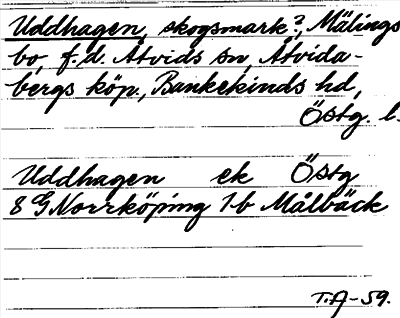 Uddhagen, skogsmark?, Mälings
bo, f.d. Åtvids sn, Åtvida-
bergs köp., Bankekinds hd,
Östg. l.
Uddhagen ek Östg
8 G Norrköping 1b Målbäck
T.A-59.